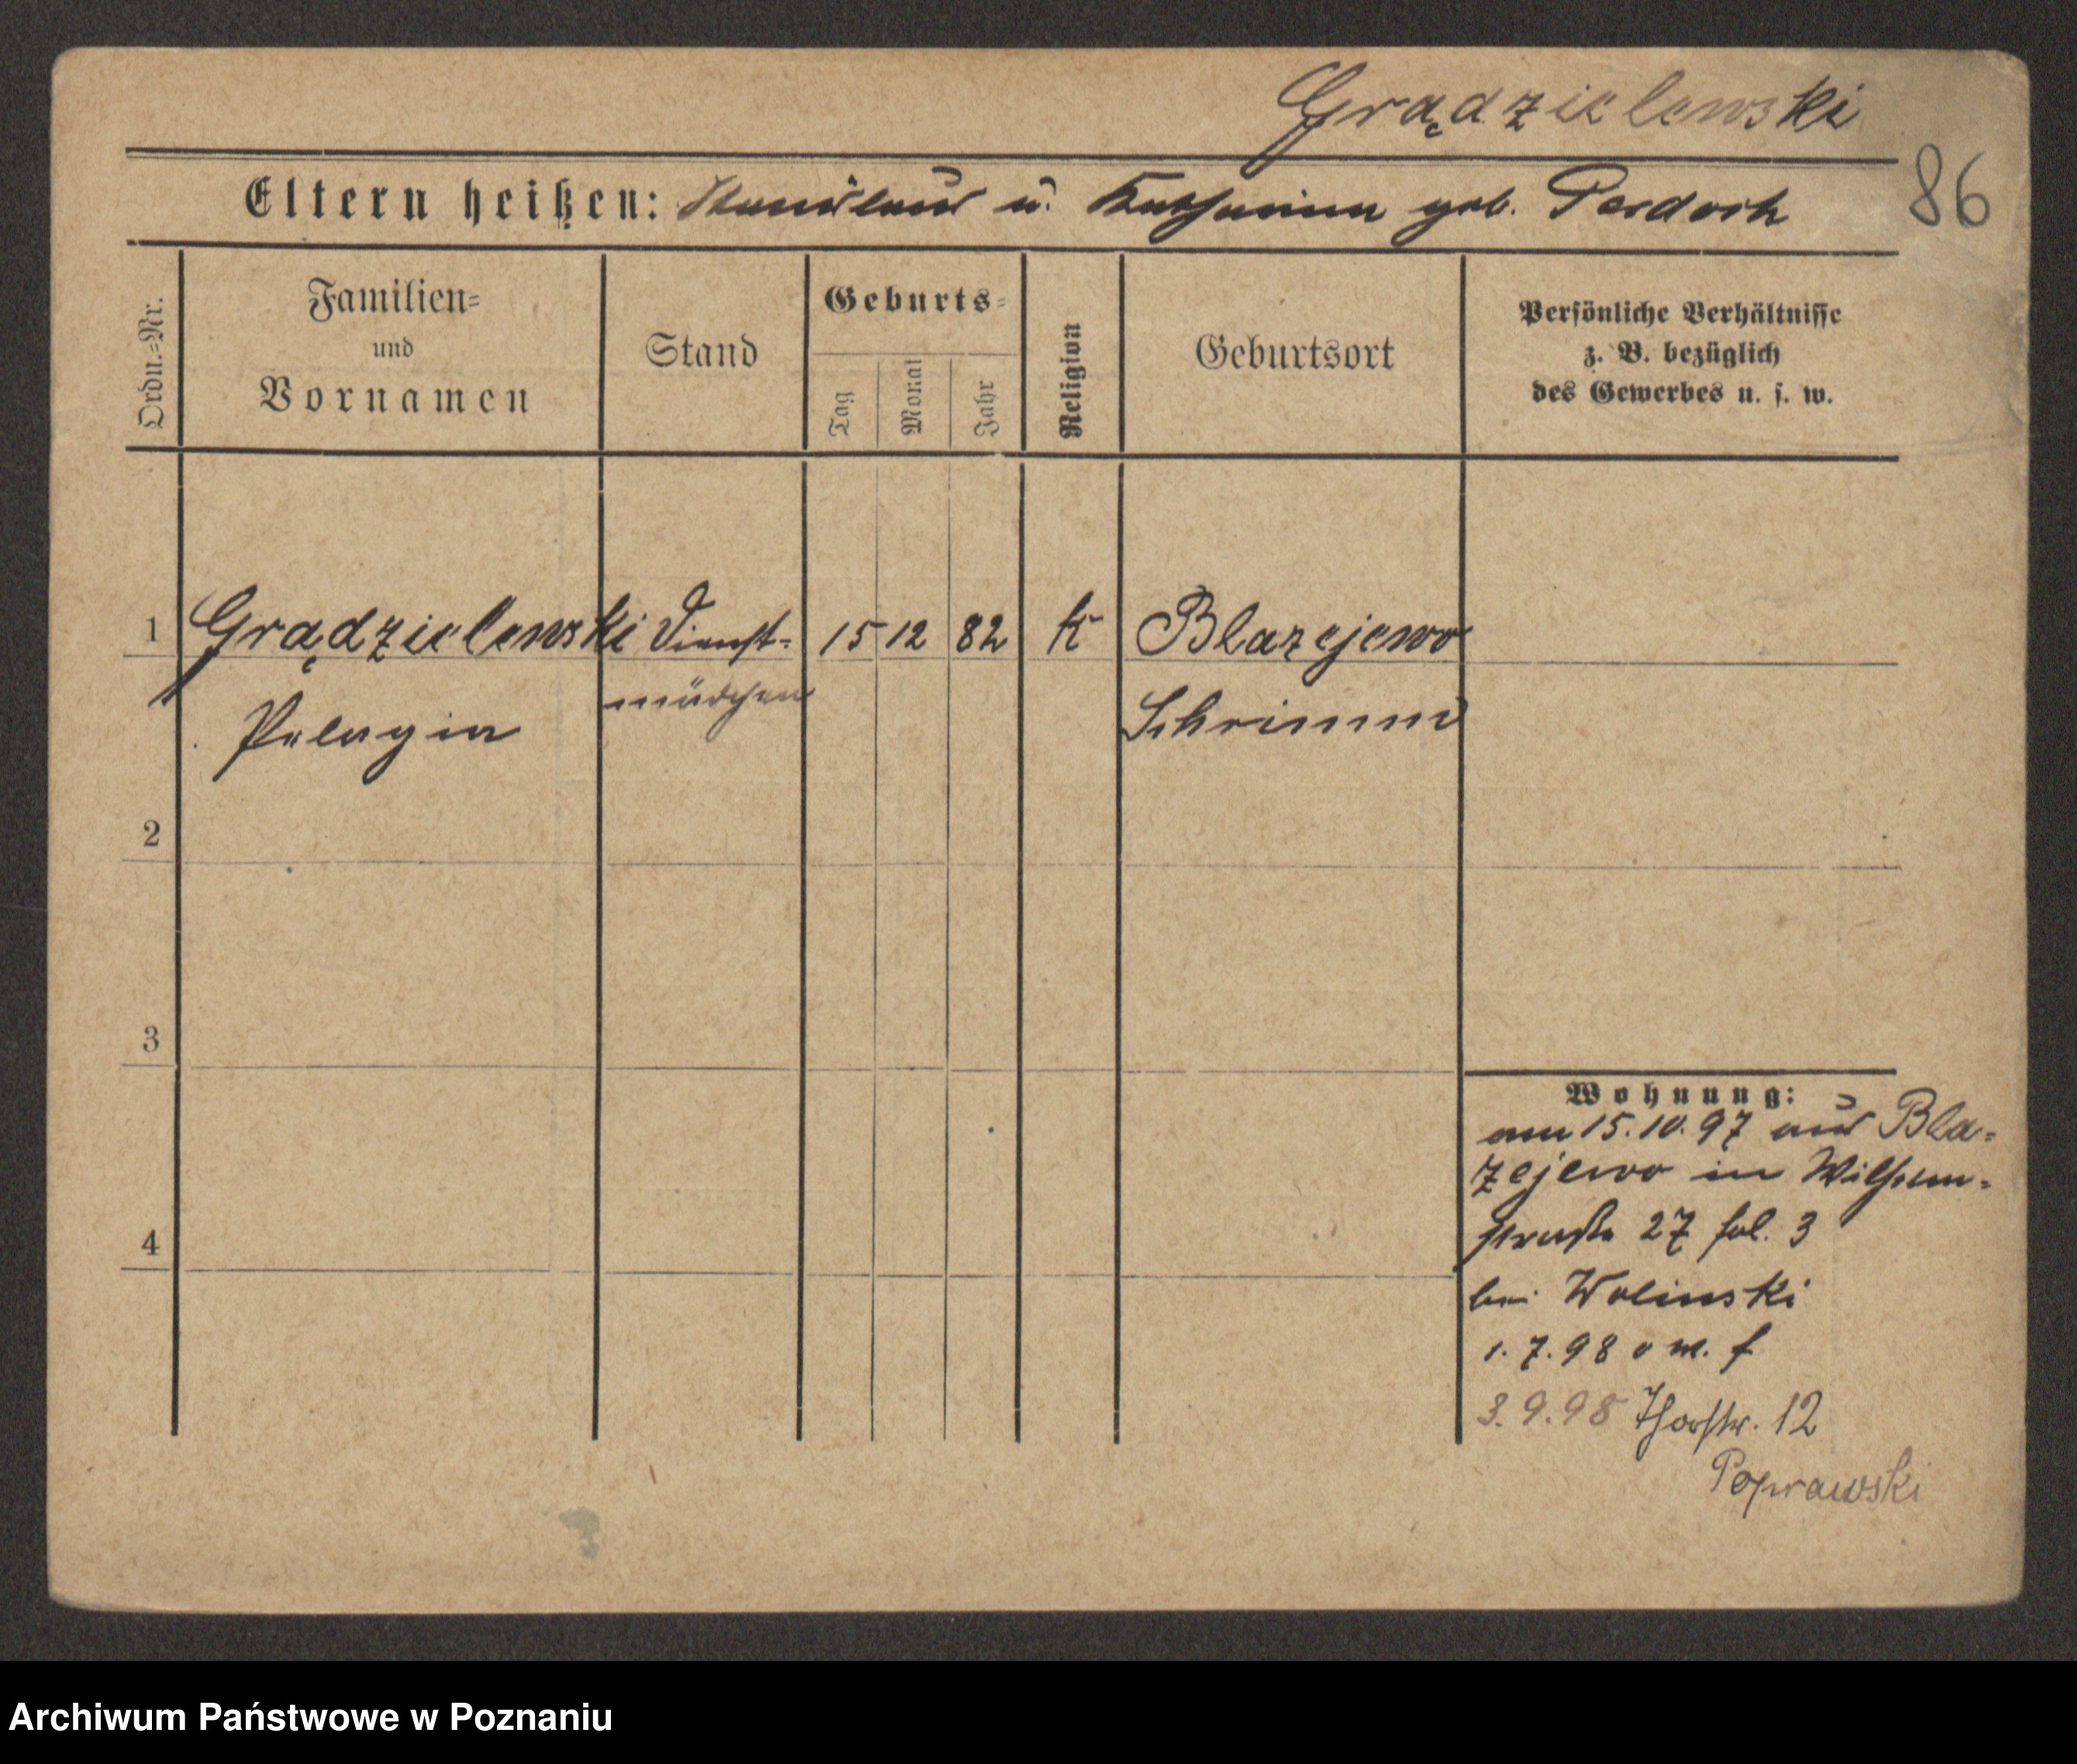 Grądzielewski
86
Eltern heißen: Stanislaus u. Katharina geb. Perdoch
Ordn.=Nr.
Familien=
und
Vornamen
Stand
Geburts=
Tag
Monat
Jahr
Religion
Geburtsort
Persönliche Verhältnisse
z. B. bezüglich
des Gewerbes u. s. w.
1 Grądzielewski Dienst= 15 12 82 K Blazejewo
Pelagia mädchen Schrimm
2
3
4
Wohnung:
am 15.10.97 aus Bla=
zejewo in Wilhelm=
straße 27 fol. 3
bei Wolinski
1.7.98 o m. f
3.9.98 Thorstr. 12
Poprawski
Archiwum Państwowe w Poznaniu